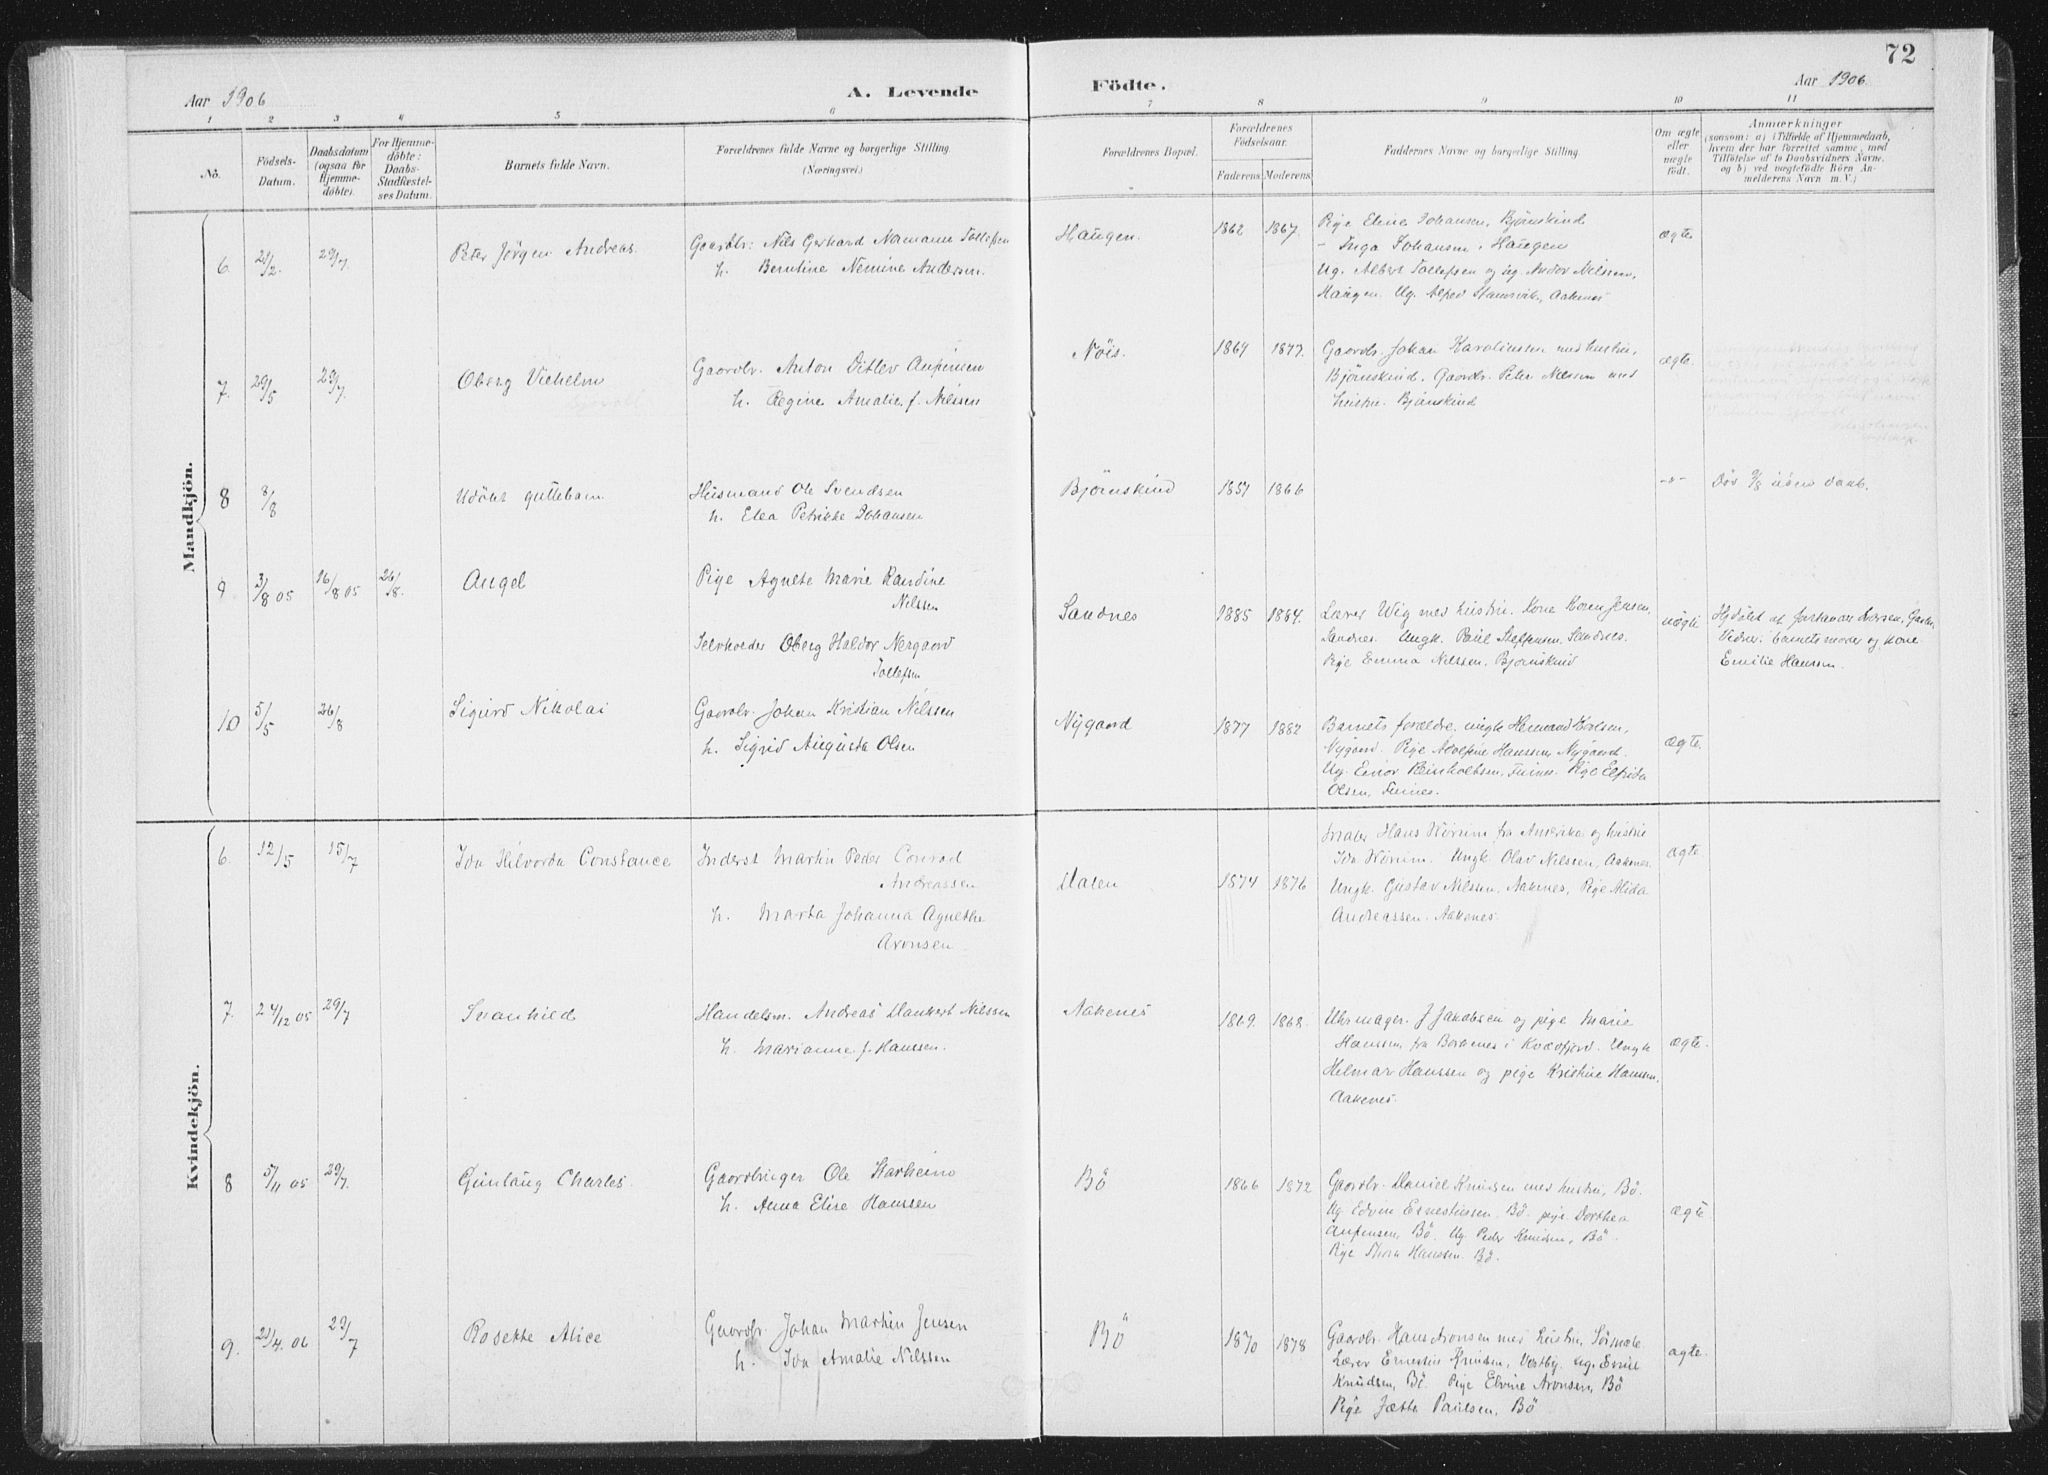 72
Aar 1906
A. Levende
Födte.
Aar 1906.
1 2 3 4 5 6 7 8 9 10 11
No.
Födsels-
Datum.
Daabsdatum
(ogsaa for
Hjemme-
döbte).
For Hjemme-
döbte:
Daabs-
Stadfæstel-
ses Datum.
Barnets fulde Navn.
Forældrenes fulde Navne og borgerlige Stilling
(Næringsvei.)
Forældrenes Bopæl.
Forældrenes
Födselsaar.
Faderens Moderens
Faddernes Navne og borgerlige Stilling.
Om ægte
eller
uægte
födt.
Anmærkninger
(saasom: a) i Tilfælde af Hjemmedaab,
hvem der har forrettet samme, med
Tilföielse af to Daabsvidners Navne.
og b) ved uægtefödte Börn An-
melderens Navn m. V.)
Mandkjön.
6. 21/2. 29/7 Peter Jörgen Andreas.
Gaardbr: Nils Gerhard Normann Tollefsen
h. Berntine Nemine Andersen.
Haugen. 1862 1867.
Pige Eline Johansen, Bjönskind
- Inga Johansen, Haugen
Ug. Albert Tollefsen og ug. Andor Nilssen,
Haugen. Ug. Alfred Stensvik, Aakenes
ægte
7. 29/5 29/7. Oberg Vilhelm
Gaardbr. Anton Ditlev Anfinsen
h. Regine Amalie f. Nilssen
Nöis. 1864 1877.
Gaardbr. Johan Karolinsen med hustru,
Bjönskind. Gaardbr. Peter Nilssen med
hustru. Bjönskind
ægte.
8 8/8 Udöbt guttebarn
Husmand Ole Svendsen
h. Elea Petrikke Johansen
Bjönskind 1857 1866
-"- Död 9/8 uden daab.
9. 3/8 05 16/8 05 26/8. Angel
Pige Agnete Marie Randine
Nilssen
Selvholder Oberg Haldor Nergaard
Tollefsen
Sandnes 1885 1884.
Lærer Wig med hustru. Kone Karen Jensen,
Sandnes. Ungk. Paul Steffensen. Sandnes.
Pige Emma Nilssen. Bjönskind
uægte
Vidner: barnets moder og kone
Emilie Hanssen.
10 5/5 26/8 Sigurd Nikolai
Gaardbr. Johan Kristian Nilssen
h. Sigrid Augusta Olsen
Nygaard 1877 1882
Barnets forældre, ungk Hermand
Nygaard. Pige Adolfine Hanssen, Nygaard.
Ug. Einor Reinholtsen, Fines. Pige Elfrida
Olsen, Fines.
ægte.
Kvindekjön.
6. 12/5 15/7 Ida Hilvarda Constance
Inderst Martin Peder Conrad
Andreassen
h. Marta Johanna Agnethe
Aronsen
Dalen 1874 1876
Maler Hans Wörum fra Amerika og hustru
Ida Wörum. Ungk. Olav Nilssen, Aakenes.
Ungk. Gustav Nilssen. Aakenes, Pige Alida
Andreassen. Aakenes.
ægte
7. 24/12 05 29/7 Svanhild
Handelsm. Andreas Dankert Nilssen
h. Marianne f. Hanssen.
Aakenes 1869. 1868.
Uhrmager. J Jakobsen og pige Marie
Hanssen, fra Borkenes i Kvædfjord. Ungk
Helmar Hanssen og pige Kristine Hanssen,
Aakenes.
ægte.
8 5/11 05 29/7. Gunlaug Charles.
Gaardbruger Ole Starheim
h. Anna Elise Hanssen
Bö 1866 1872
Gaardbr. Daniel Knudsen med hustru, Bö.
Ug. Edvin Ernestussen. Bö. pige Dorthea
Anfinsen, Bö. Ug. Peder Knudsen, Bö.
Pige Thora Hanssen. Bö.
ægte
9. 21/4. 06 29/7 Rosette Alice
Gaardbr. Johan Martin Jensen
h. Ida Amalie Nilssen
Bö 1870 1878
Gaardbr. Hans Aronsen med hustru,
Lærer Ernestus Knudsen, Vestby. ug. Emil
Knudsen, Bö. Pige Elvine Aronsen, Bö
Pige Jætta Paulsen, Bö
ægte.